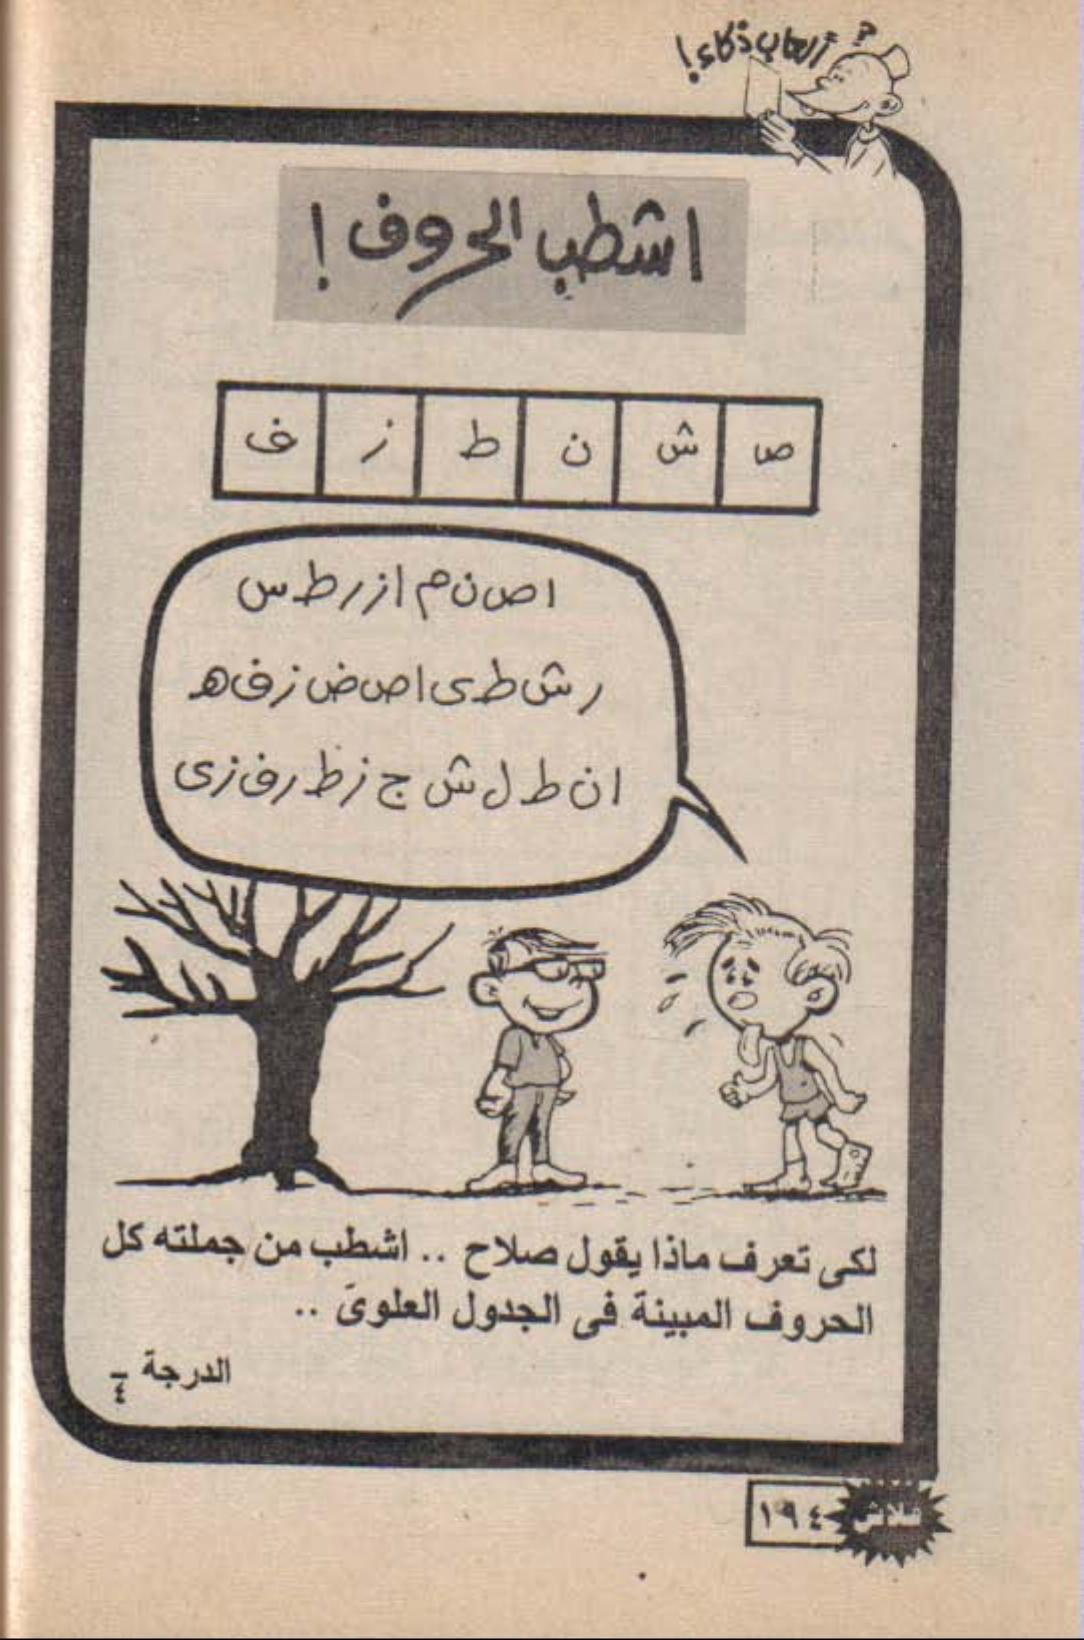 ألعاب ذكاء!
اشطب الحروف!
ص ش ن ط ز ف
ا ص ن م ا ز ر ط س
ر ش ط ى ا ص ض ز ف ه
ا ن ط ل ش ج ز ظ ر ف ز ى
لكى تعرف ماذا يقول صلاح .. اشطب من جملته كل
الحروف المبينة فى الجدول العلوىَ ..
الدرجة ـ
٤
فلاش
١٩٤